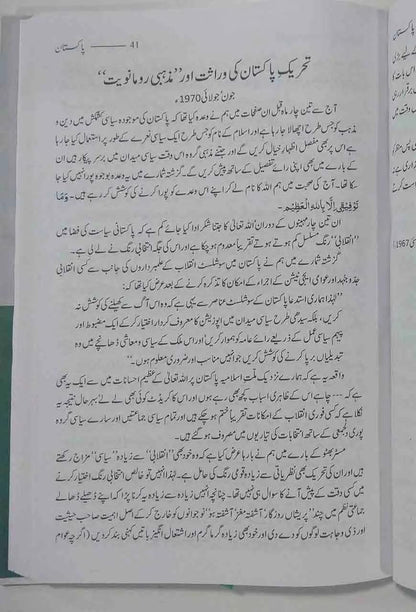 41 ——— پاکستان
تحریکِ پاکستان کی وراثت اور ”مذہبی رومانویت“
جون/جولائی 1970ء
آج سے تین چار ماہ قبل ان صفحات میں ہم نے وعدہ کیا تھا کہ پاکستان کی موجودہ سیاسی کشمکش میں دین و
مذہب کو جس طرح اچھالا جا رہا ہے اور اسلام کے نام کو جس طرح ایک سیاسی نعرے کے طور پر استعمال کیا جا رہا
ہے اس پر بھی مفصل اظہار خیال کریں گے اور جتنے مذہبی گروہ اس وقت سیاسی میدان میں برسرِ پیکار ہیں ان
کے بارے میں بھی اپنی رائے تفصیل کے ساتھ پیش کریں گے۔ گزشتہ شمارے میں یہ وعدہ بوجوہ پورا نہیں کیا جا
سکا تھا۔ آج کی صحبت میں ہم اللہ کا نام لے کر اپنے اس وعدے کو پورا کرنے کی کوشش کر رہے ہیں۔ وَمَا
تَوْفِيْقِيْ اِلَّا بِاللهِ الْعَظِيْمِ۔
ان تین چار مہینوں کے دوران اللہ تعالیٰ کا جتنا شکر ادا کیا جائے کم ہے کہ پاکستانی سیاست کی فضا میں
”انقلابی“ رنگ مسلسل کم ہوتے ہوتے تقریباً معدوم ہو چکا ہے اور اس کی جگہ انتخابی رنگ نے لے لی ہے۔
گزشتہ شمارے میں ہم نے پاکستان میں سوشلسٹ انقلاب کے علمبرداروں کی جانب سے کسی انقلابی
جدوجہد اور عوامی ایجی ٹیشن کے اجراء کے امکان کا تذکرہ کرنے کے بعد عرض کیا تھا کہ:
”لہٰذا ہماری استدعا پاکستان کے سوشلسٹ عناصر سے یہی ہے کہ وہ اس آگ سے کھیلنے کی کوشش نہ
کریں، بلکہ سیدھی طرح سیاسی میدان میں اپوزیشن کا معروف کردار اختیار کر کے ایک مضبوط اور
پیہم سیاسی عمل کے ذریعے رائے عامہ کو ہموار کریں اور اس ملک کے سیاسی و معاشی ڈھانچے میں وہ
تبدیلیاں برپا کرنے کی کوشش کریں جو انہیں مناسب اور ضروری معلوم ہوں۔“
واقعہ یہ ہے کہ ہمارے نزدیک ملتِ اسلامیہ پاکستان پر اللہ تعالیٰ کے عظیم احسانات میں سے ایک یہ بھی
ہے کہ --- چاہے اس کے ظاہری اسباب کچھ بھی رہے ہوں اور اس کا کریڈٹ کوئی بھی لے لے بہرحال نتیجہ یہ
نکلا ہے کہ کسی فوری انقلاب کے امکانات تقریباً ختم ہو چکے ہیں اور تمام سیاسی جماعتیں اور سارے سیاسی گروہ
پوری دلجمعی کے ساتھ انتخابات کی تیاریوں میں مصروف ہو گئے ہیں۔
مسٹر بھٹو کے بارے میں ہم نے بارہا عرض کیا ہے کہ وہ خود بھی ”انقلابی“ سے زیادہ ”سیاسی“ مزاج رکھتے
ہیں اور ان کی تحریک بھی نظریاتی سے زیادہ قومی رنگ کی حامل ہے۔ لہٰذا انہیں تو خالص انتخابی رنگ اختیار کرنے
میں کسی دقت کے پیش آنے کا سوال ہی نہیں تھا۔ چنانچہ انہیں زیادہ سے زیادہ یہ کرنا پڑا کہ اپنے ڈھیلے ڈھالے
جماعتی نظم میں چند ”پریشاں روزگار، آشفتہ مغز، آشفتہ ہو“ نوجوانوں کو خارج کر کے اصل اہمیت صاحب حیثیت
اور ذی وجاہت لوگوں کو دے دی اور خود بھی زیادہ گرما گرم اور اشتعال انگیز باتیں کہنی بند کر دیں (اگرچہ عوام